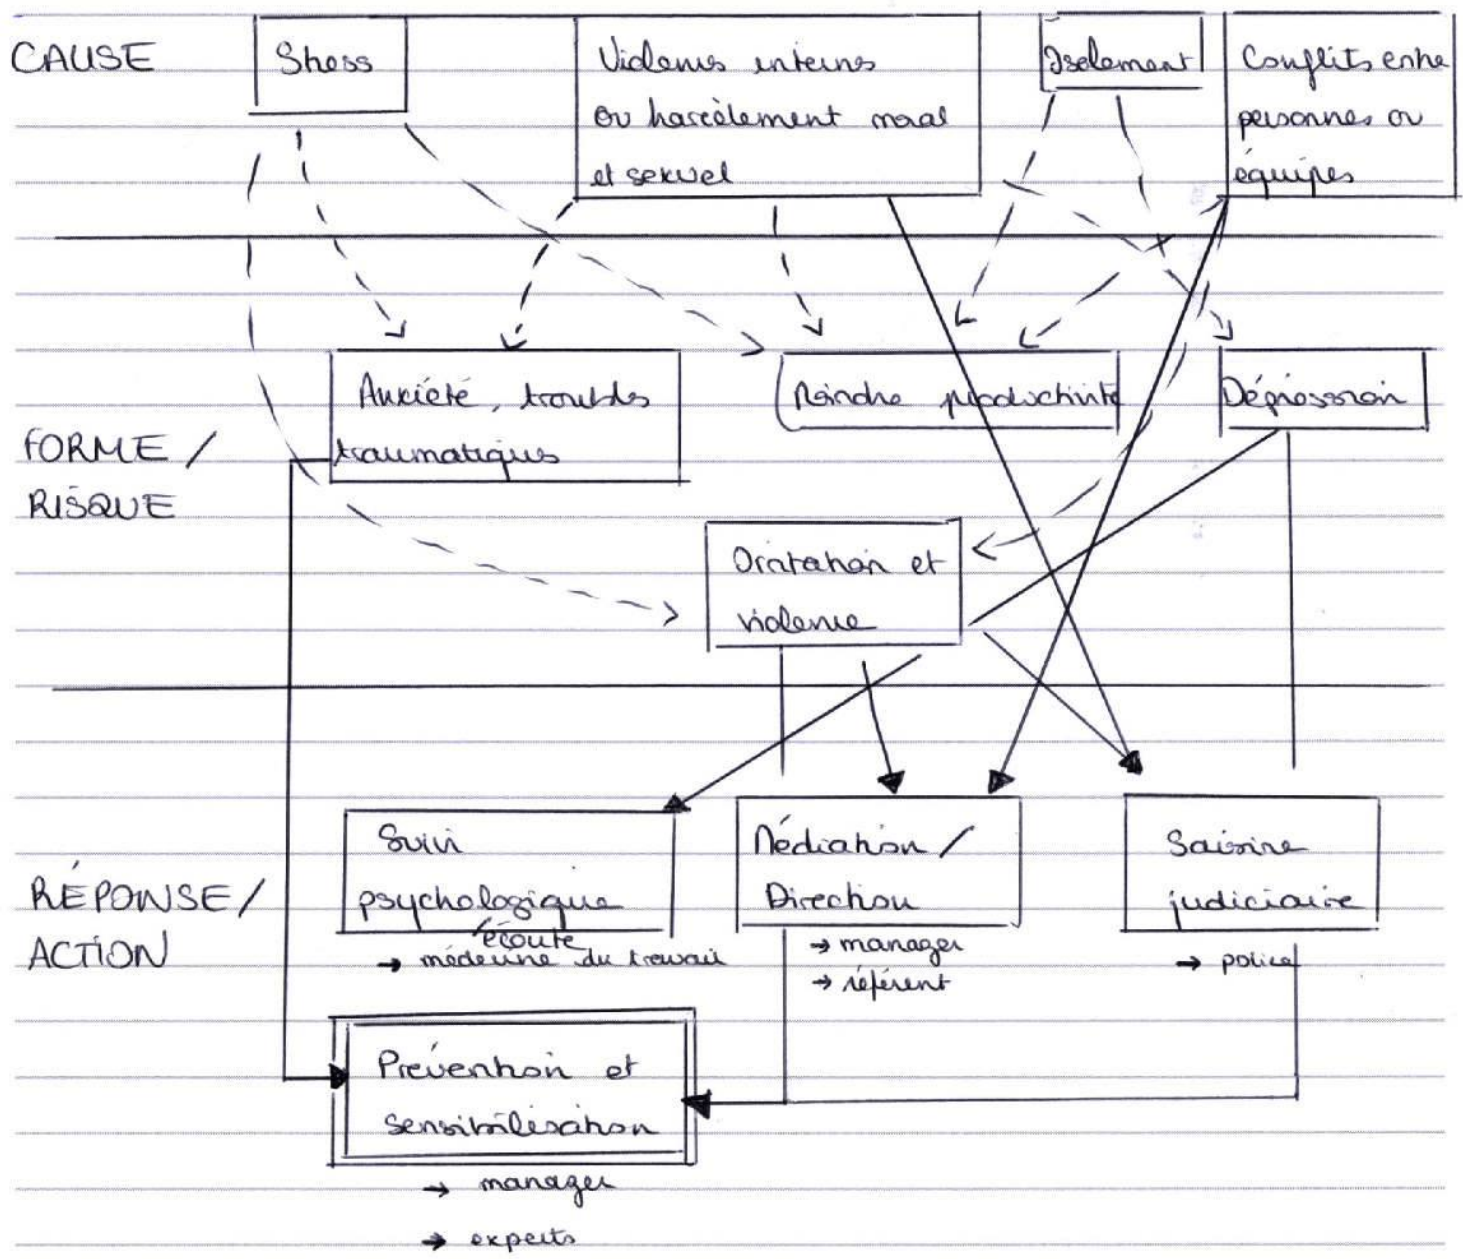 CAUSE
Stress
Violences internes
ou harcèlement moral
et sexuel
Isolement
Conflits entre
personnes ou
équipes
FORME /
RISQUE
Anxiété, troubles
traumatiques
Moindre productivité
Dépression
Irritation et
violence
RÉPONSE /
ACTION
Suivi
psychologique
/écoute
→ médecine du travail
Médiation /
Direction
→ manager
→ référent
Saisine
judiciaire
→ police
Prévention et
sensibilisation
→ manager
→ experts